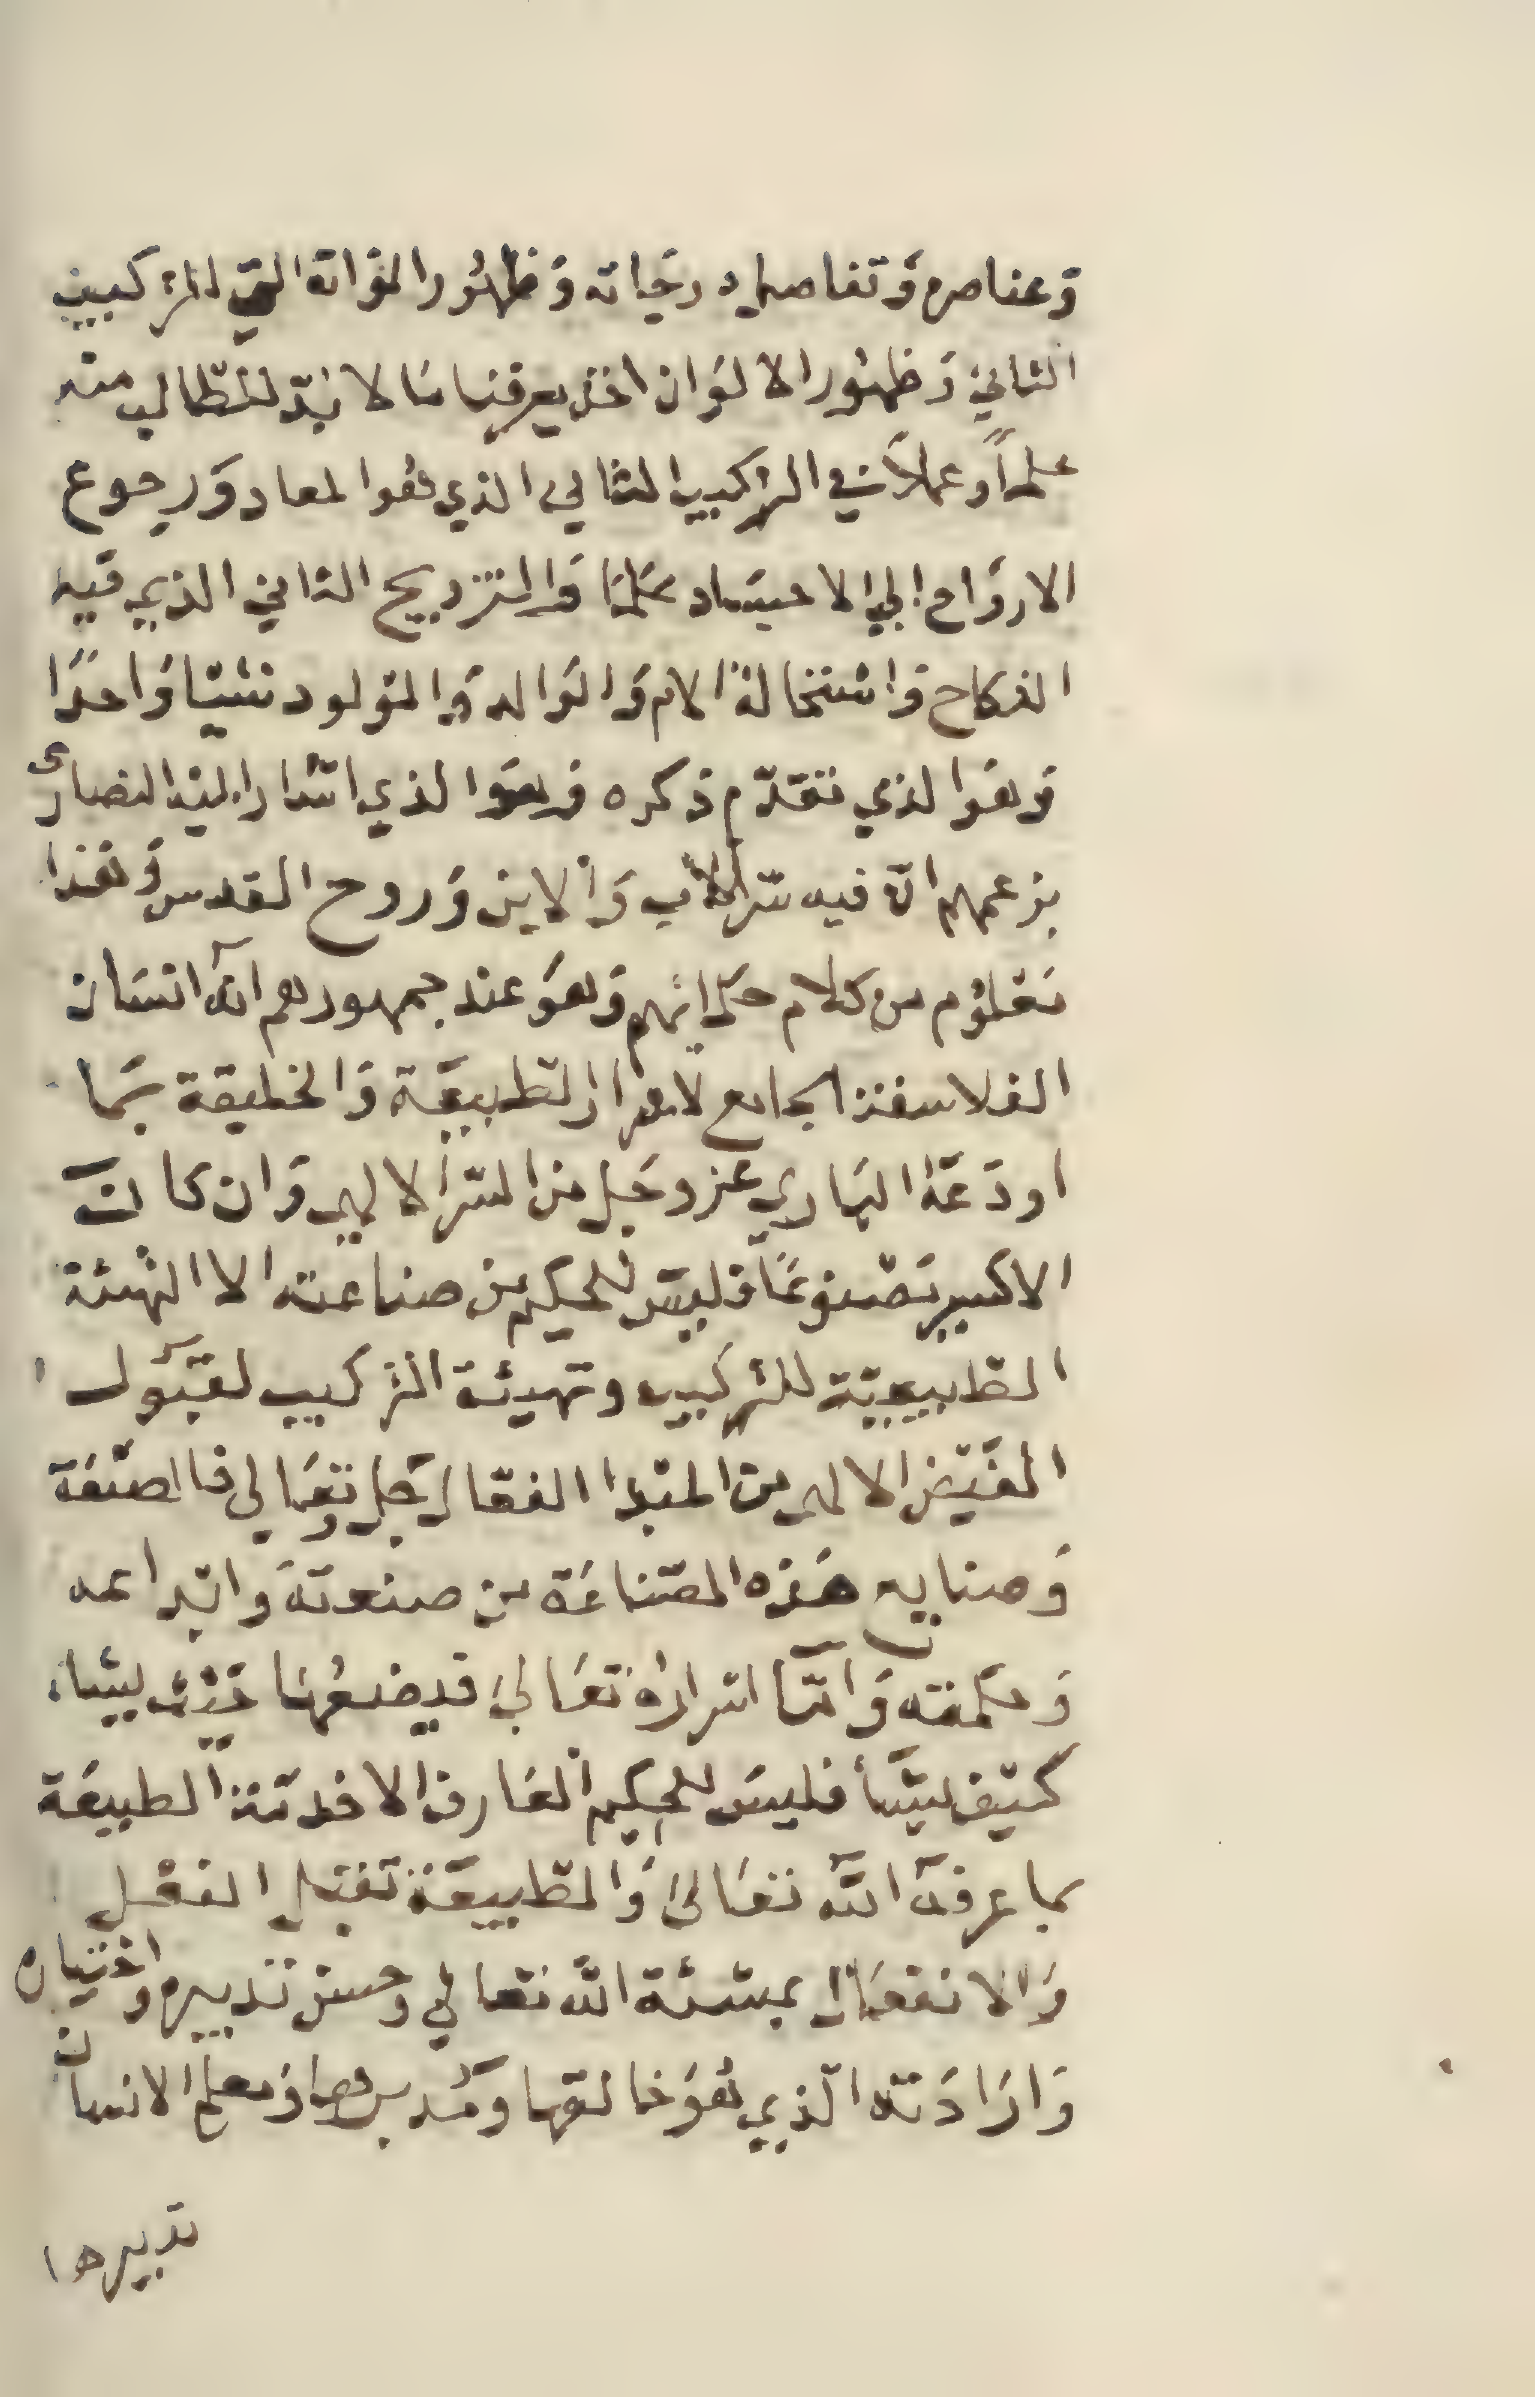 وعناصره وتفاصيله درجاته وظهور المؤاتة التي للتركيب
الثاني وظهور الالوان اخذ يعرفنا ما لا بُدّ للطّالب منه
علماً وعملاً في التركيب الثاني الذي هو المعاد ورجوع
الارواح الي الاجساد علمًا والتزويج الثاني الذي فيه
النكاح واستحالة الام والوالد والمولود شيئا واحدًا
وهو الذي تقدّم ذكره وهو الذي اشار اليه النصارى
بزعمهم انّه فيه سّر الأب والابن وروح القدس وهذا
معلوم من كلام حكمائهم وهو عند جمهورهم انه انسان
الفلاسفة الجامع لاسرار الطبيعة والخليقة بما
اودعه الباري عز وجل من السّر الالهي وان كان
الاكسير مصنوعًا فليس للحكيم من صناعته الا الهيئة
الطبيعيّة للتركيب وتهيئة التركيب لقبول
الفيض الالهي من المبدا الفعّال جل وتعالي فالصنعة
وصنايع هذه الصّناعة من صنعته وابداعه
وحكمته وامّا اسراره تعالي فيضعها حيث يشاء
كيف يشأ فليس للحكيم العارف الا خدمة الطبيعة
بما عرفه الله تعالى والطّبيعة تقبل الفعل
والانفعال بمشئة الله تعالي وحسن تدبيره واختياره
وارادته الّذي هو خالقها ومُدبرها ومعلم الانسان
تدبيرها